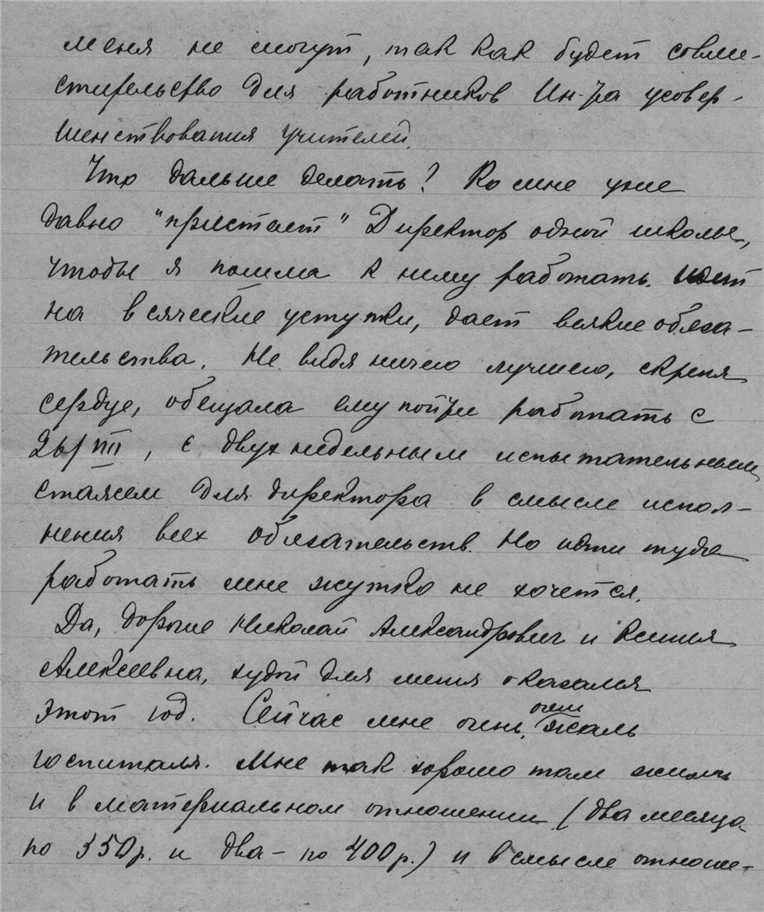 меня не могут, так как будет совме-
стительство для работников Ин-та усовер-
шенствования учителей.
Что дальше делать? Ко мне уже
давно "пристает" Директор одной школы,
чтобы я пошла к нему работать. Идет
на всяческие уступки, дает всякие обяза-
тельства. Не видя ничего лучшего, скрепя
сердце, обещала ему пойти работать с
26/VIII, с двух недельным испытательным
стажем для директора в смысле испол-
нения всех обязательств. Но идти туда
работать мне жутко не хочется.
Да, дорогие Николай Александрович и Ксения
Алексеевна, худой для меня оказался
этот год. Сейчас мне очень, очень жаль
госпиталя. Мне так хорошо там жилось
и в материальном отношении (два месяца
по 350р. и два - по 400р.) и в смысле отноше-